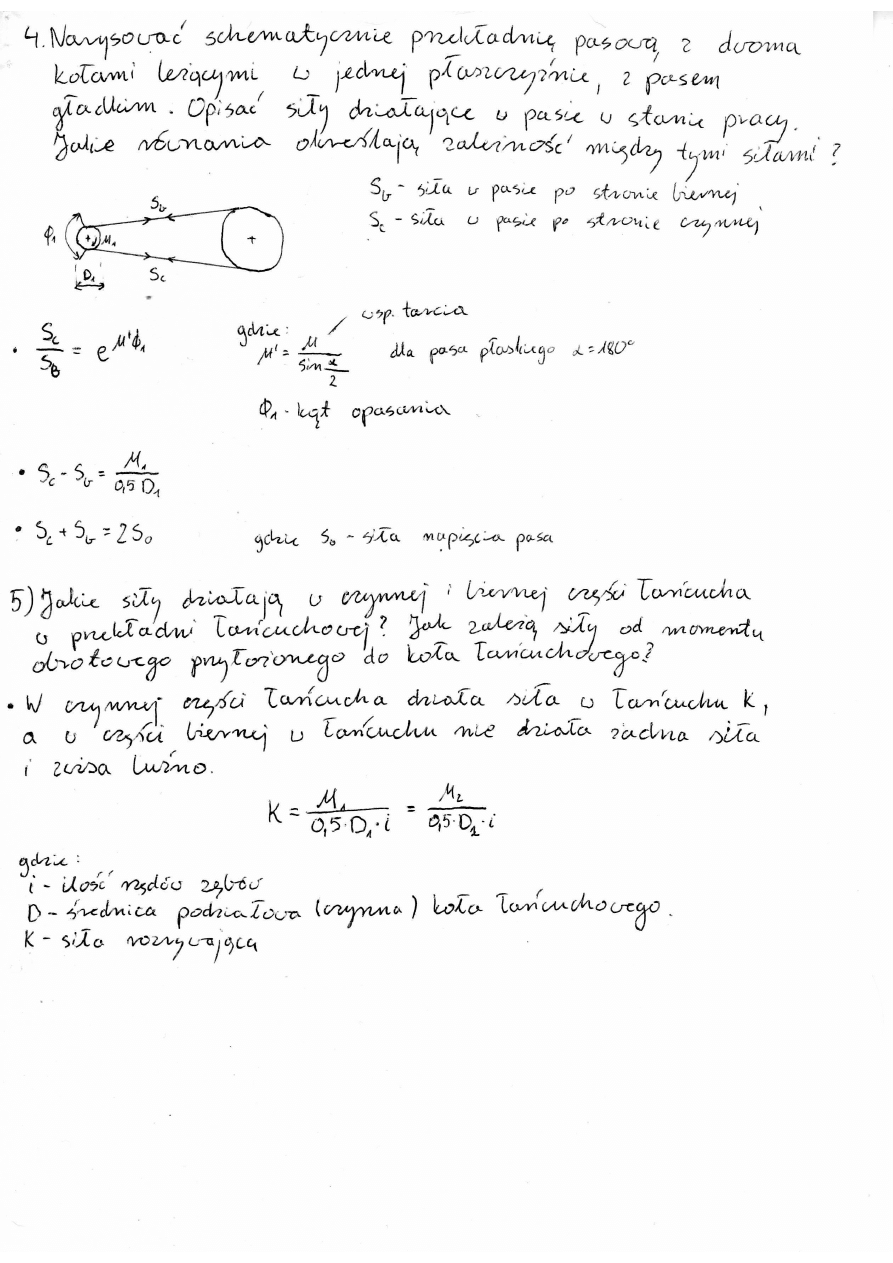 4. Narysować schematycznie przekładnię pasową z dwoma
kołami leżącymi w jednej płaszczyźnie, z pasem
gładkim. Opisać siły działające w pasie w stanie pracy.
Jakie równania określają zależność między tymi siłami?
Sb - siła w pasie po stronie biernej
Sc - siła w pasie po stronie czynnej
Sb
φ1
M1
D1
Sc
• Sc/SB = e^μ'φ1
gdzie:
wsp. tarcia
μ' = μ / sin α/2
dla pasa płaskiego α=180°
φ1 - kąt opasania
• Sc - Sb = M1 / 0,5 D1
• Sc + Sb = 2S0
gdzie S0 - siła napięcia pasa
5) Jakie siły działają w czynnej i biernej części łańcucha
w przekładni łańcuchowej? Jak zależą siły od momentu
obrotowego przyłożonego do koła łańcuchowego?
• W czynnej części łańcucha działa siła w łańcuchu K,
a w części biernej w łańcuchu nie działa żadna siła
i zwisa luźno.
K = M1 / 0,5·D1·i = M2 / 0,5·D2·i
gdzie:
i - ilość rzędów zębów
D - średnica podziałowa (czynna) koła łańcuchowego.
K - siła rozrywająca